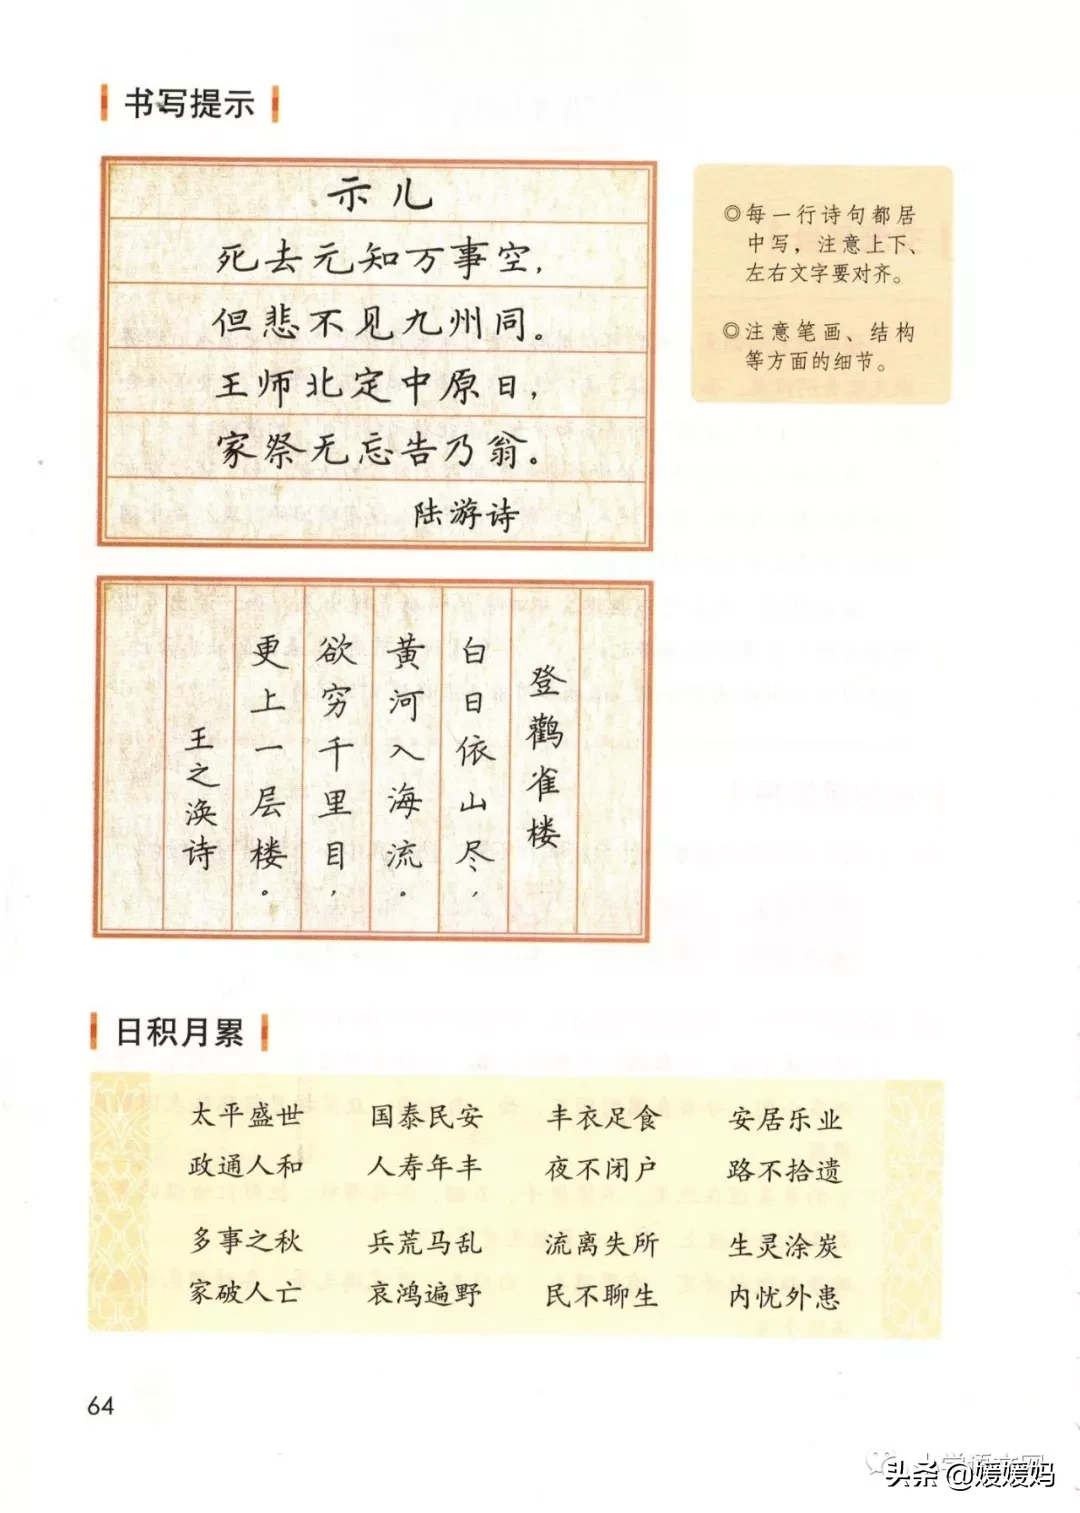 书写提示
示儿
死去元知万事空，
但悲不见九州同。
王师北定中原日，
家祭无忘告乃翁。
陆游诗
◎每一行诗句都居
中写，注意上下、
左右文字要对齐。
◎注意笔画、结构
等方面的细节。
登鹳雀楼
白日依山尽，
黄河入海流。
欲穷千里目，
更上一层楼。
王之涣诗
日积月累
太平盛世 国泰民安 丰衣足食 安居乐业
政通人和 人寿年丰 夜不闭户 路不拾遗
多事之秋 兵荒马乱 流离失所 生灵涂炭
家破人亡 哀鸿遍野 民不聊生 内忧外患
64
小学语文网
头条 @媛媛妈